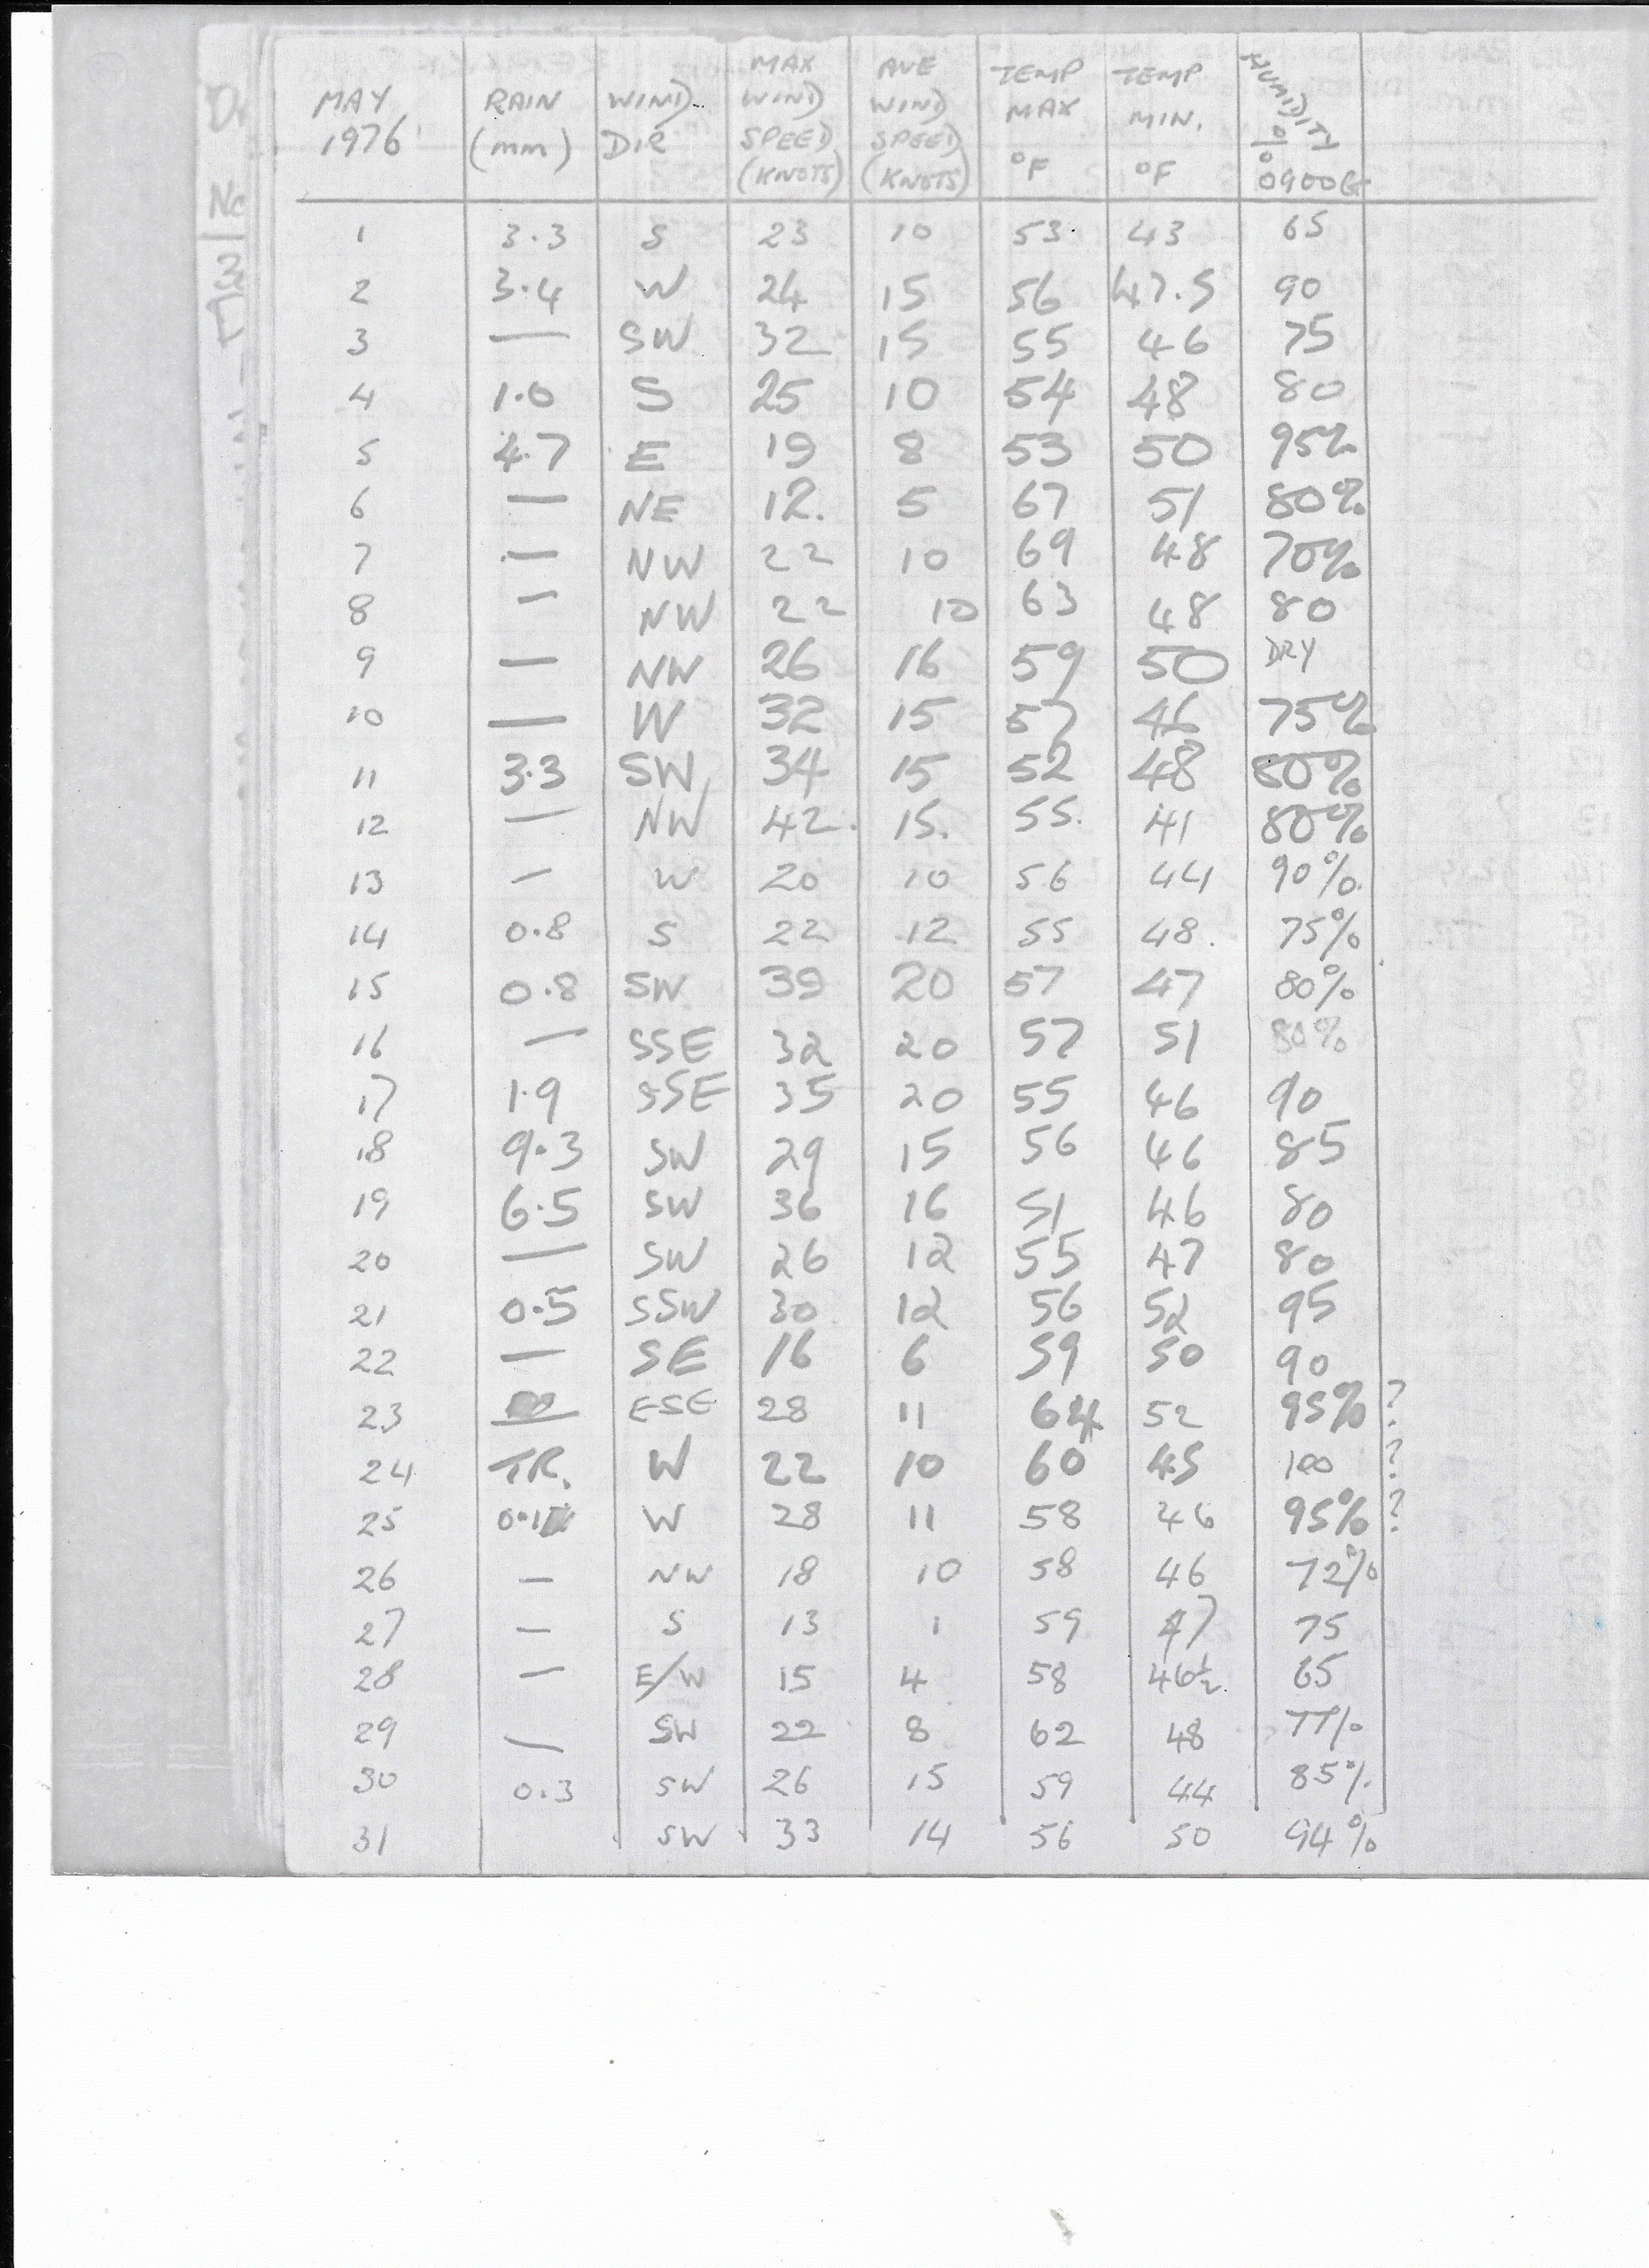 MAY 1976 RAIN (mm) WIND DIR MAX WIND SPEED (KNOTS) AVE WIND SPEED (KNOTS) TEMP MAX °F TEMP MIN. °F HUMIDITY % 0900G
1 3.3 S 23 10 53 43 65
2 3.4 W 24 15 56 47.5 90
3 — SW 32 15 55 46 75
4 1.0 S 25 10 54 48 80
5 4.7 E 19 8 53 50 95%
6 — NE 12. 5 67 51 80%
7 — NW 22 10 69 48 70%
8 — NW 22 10 63 48 80
9 — NW 26 16 59 50 DRY
10 — W 32 15 57 46 75%
11 3.3 SW 34 15 52 48 80%
12 — NW 42. 15. 55. 41 80%
13 — W 20 10 56 44 90%
14 0.8 S 22 12 55 48. 75%
15 0.8 SW 39 20 57 47 80%
16 — SSE 32 20 57 51 80%
17 1.9 SSE 35 20 55 46 90
18 9.3 SW 29 15 56 46 85
19 6.5 SW 36 16 51 46 80
20 — SW 26 12 55 47 80
21 0.5 SSW 30 12 56 52 95
22 — SE 16 6 59 50 90
23 — ESE 28 11 64 52 95% ?
24 TR. W 22 10 60 45 100 ?
25 0.1 W 28 11 58 46 95% ?
26 — NW 18 10 58 46 72%
27 — S 13 1 59 47 75
28 — E/W 15 4 58 46½ 65
29 — SW 22 8 62 48 77%
30 0.3 SW 26 15 59 44 85%
31 SW 33 14 56 50 94%